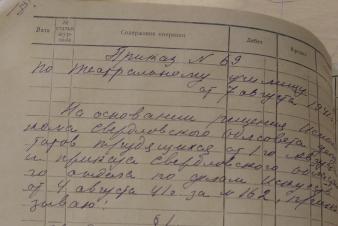 Дата
№ статьи жур- нала
Содержание операции
Дебет
Кредит
Приказ N 69
По театральному училищу
от 7 августа 194
На основании решения Испол
кома Свердловского облсовета
татов трудящихся от 1го
и приказа Свердловского
го отдела по делам искусств
от 4 августа 41г за N 162, прика
зываю:
§1